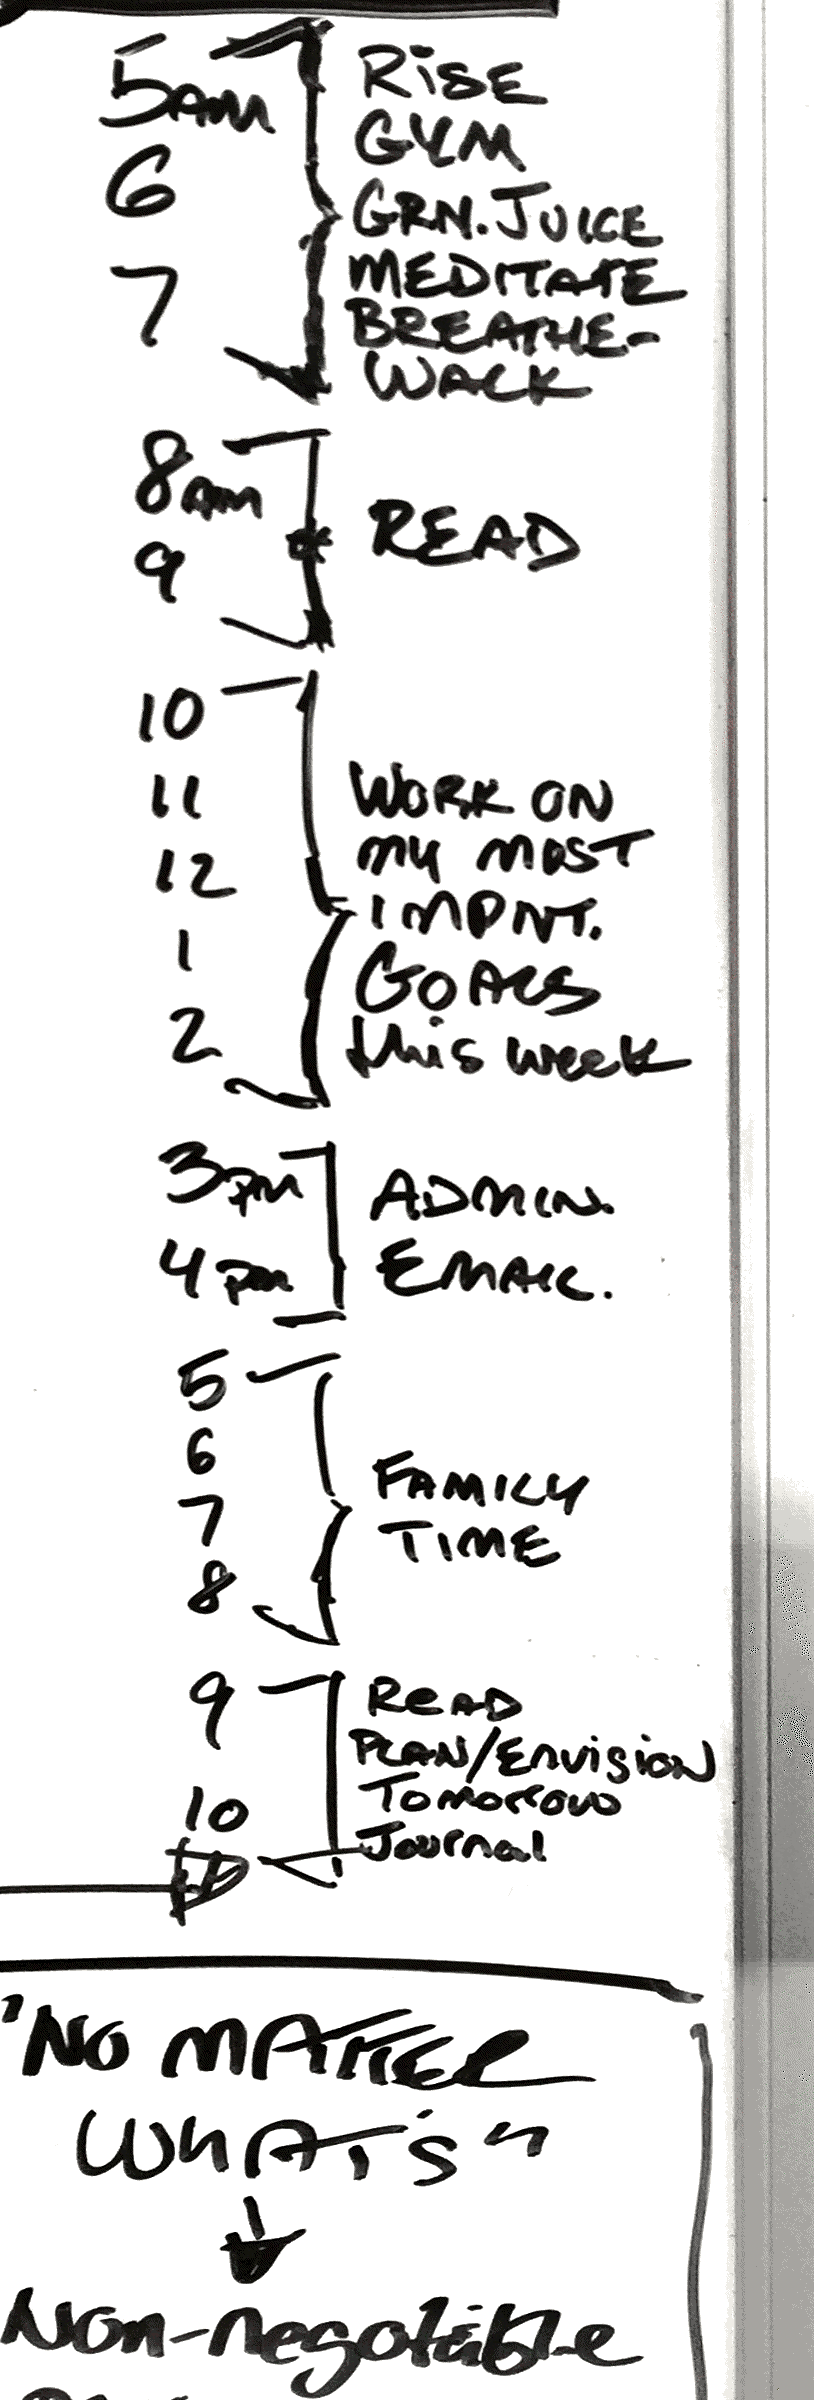 5AM
6
7
RISE
GYM
GRN. JUICE
MEDITATE
BREATHE-
WALK
8AM
9
READ
10
11
12
1
2
WORK ON
MY MOST
IMPNT.
GOALS
this week
3PM
4PM
ADMIN.
EMAIL.
5
6
7
8
FAMILY
TIME
9
10
READ
PLAN/ENVISION
TOMORROW
Journal
"NO MATTER
WHAT'S"
Non-negotiable